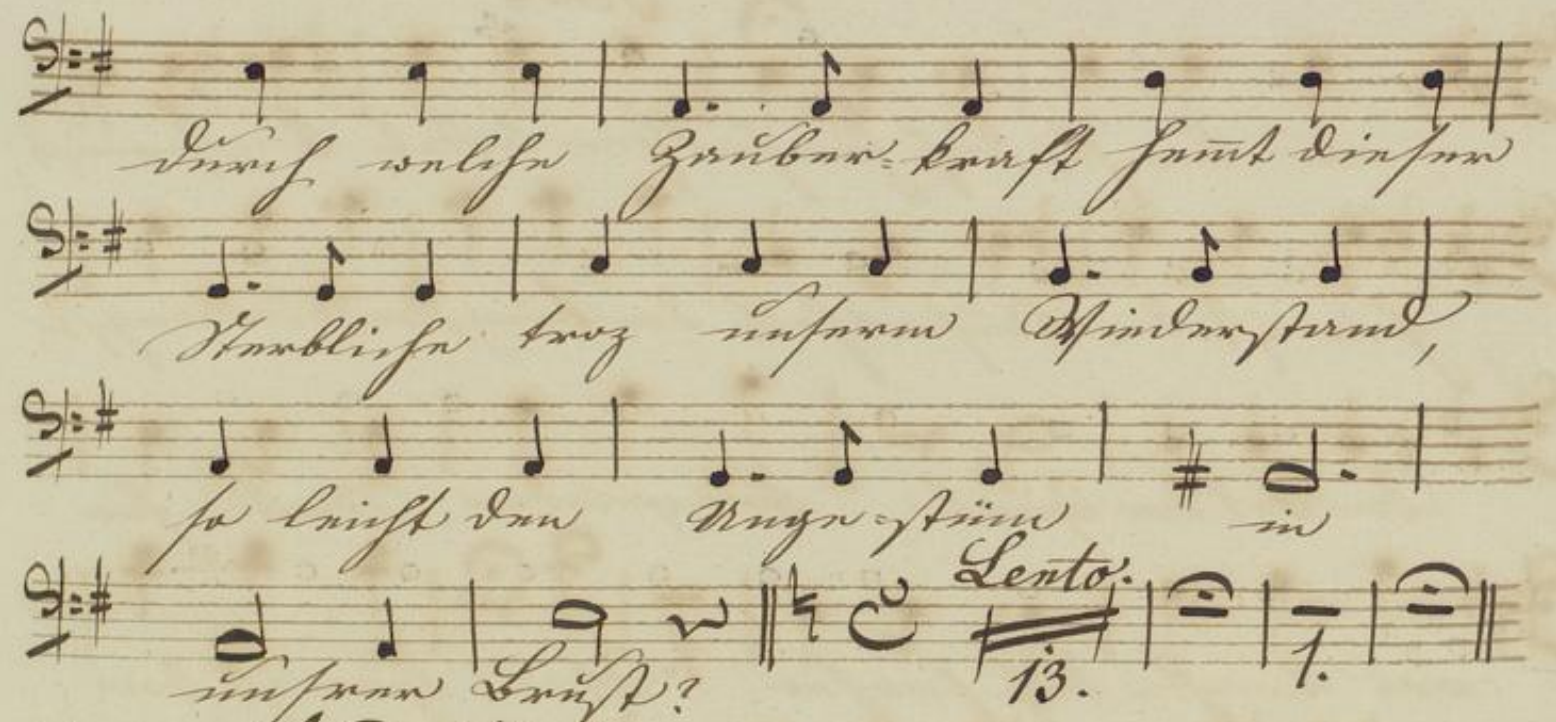 durch welche Zauber=kraft hem̅t dieser
Sterbliche troz unserm Wiederstand,
so leicht den Unge=stüm in
Lento.
13. 1.
unsrer Brust?